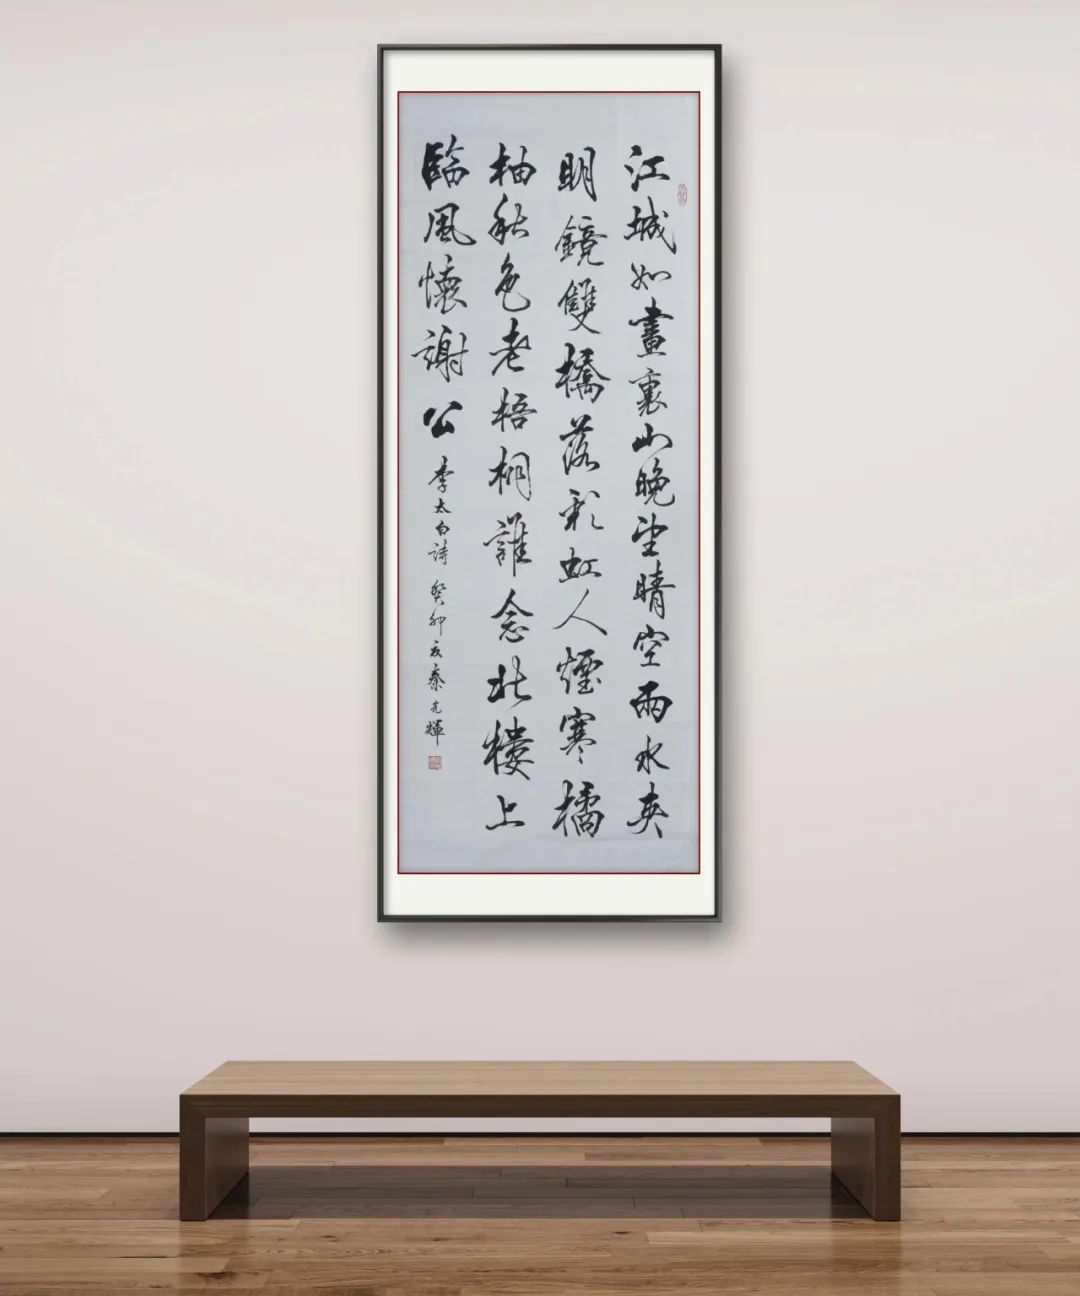 江城如畫裏山晚望晴空兩水夾
明鏡雙橋落彩虹人煙寒橘
柚秋色老梧桐誰念北樓上
臨風懷謝公
李太白詩 癸卯夏秦光輝